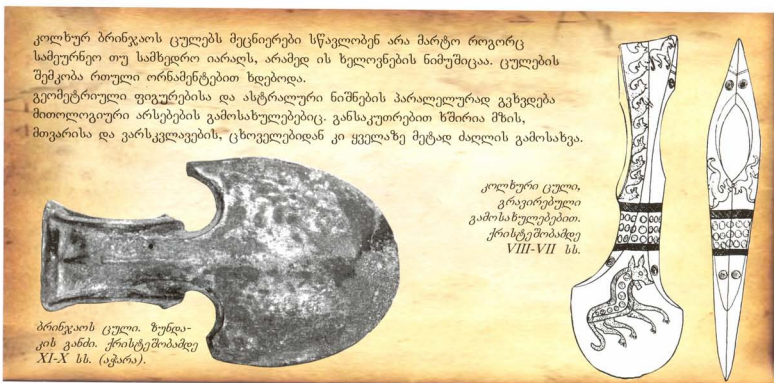 კოლხურ ბრინჯაოს ცულებს მეცნიერები სწავლობენ არა მარტო როგორც
სამეურნეო თუ სამხედრო იარაღს, არამედ ის ხელოვნების ნიმუშიცაა. ცულების
შემკობა რთული ორნამენტებით ხდებოდა.
გეომეტრიული ფიგურებისა და ასტრალური ნიშნების პარალელურად გვხვდება
მითოლოგიური არსებების გამოსახულებებიც. განსაკუთრებით ხშირია მზის,
მთვარისა და ვარსკვლავების, ცხოველებიდან კი ყველაზე მეტად ძაღლის გამოსახვა.
კოლხური ცული,
გრავირებული
გამოსახულებებით.
ქრისტეშობამდე
VIII-VII სს.
ბრინჯაოს ცული. ზუნდა-
გის განძი. ქრისტეშობამდე
XI-X სს. (აჭარა).